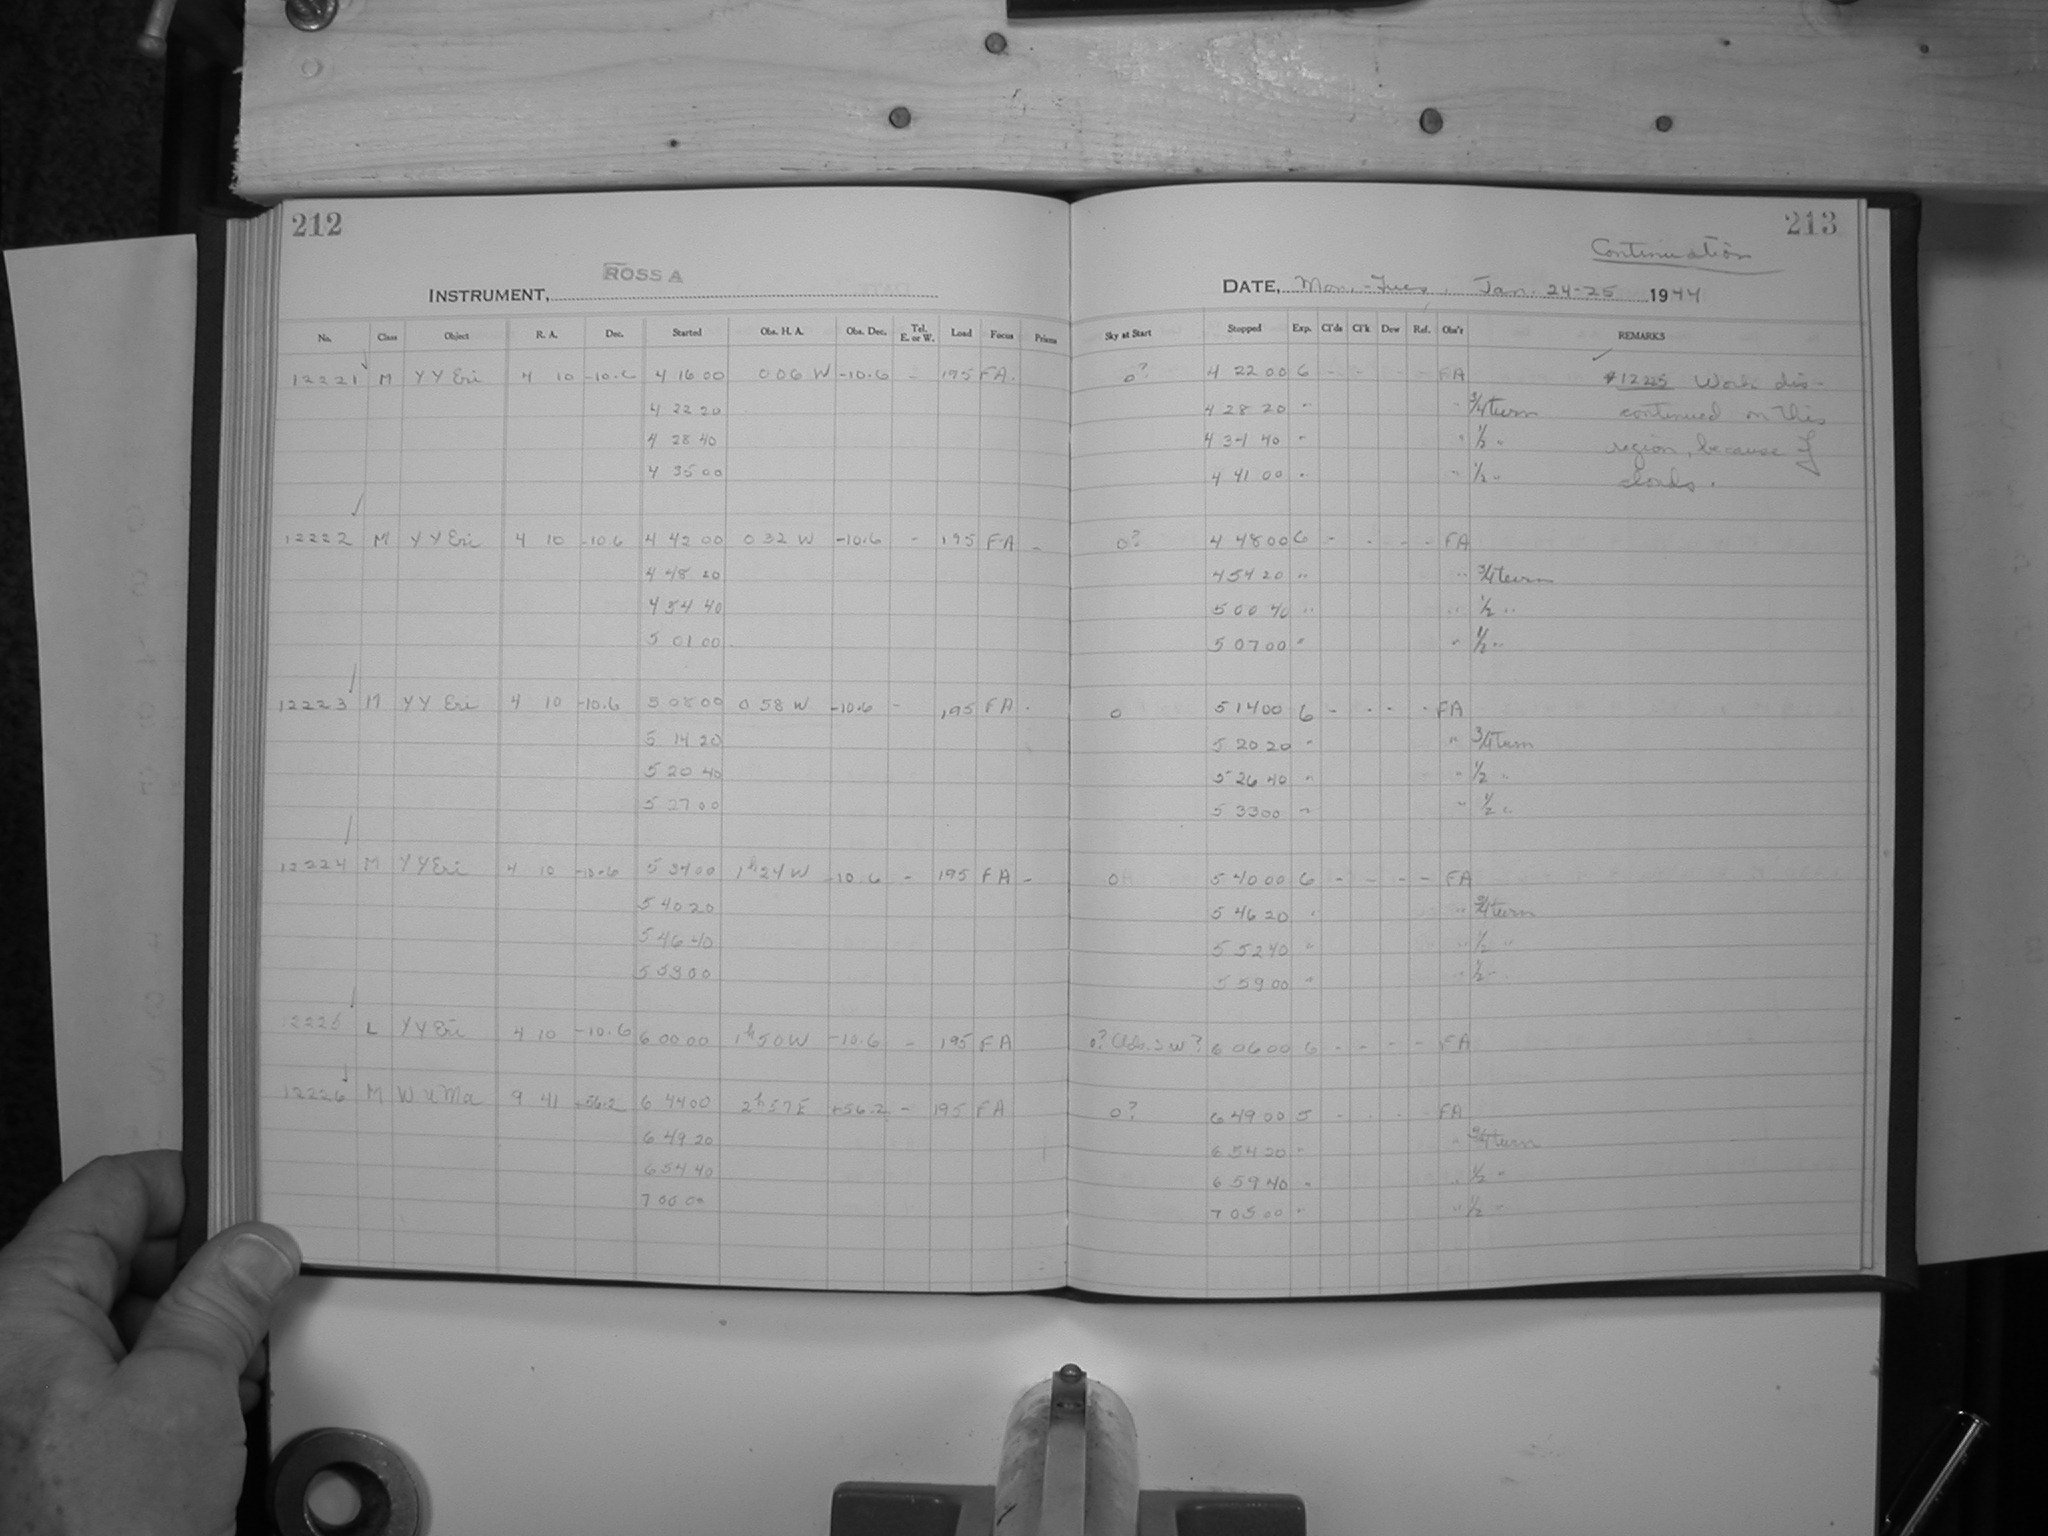 212
ROSS A
INSTRUMENT,
No. Class Object R. A. Dec. Started Obs. H. A. Obs. Dec. Tel. E. or W. Load Focus Prisms
12221 M YY Eri 4 10 -10.6 4 16 00 0 06 W -10.6 - 195 FA.
4 22 20
4 28 40
4 35 00
12222 M YY Eri 4 10 -10.6 4 42 00 0 32 W -10.6 - 195 FA -
4 48 20
4 54 40
5 01 00
12223 M YY Eri 4 10 -10.6 5 08 00 0 58 W -10.6 - 195 FA -
5 14 20
5 20 40
5 27 00
12224 M YY Eri 4 10 -10.6 5 34 00 1h 24 W -10.6 - 195 FA -
5 40 20
5 46 40
5 53 00
12225 L YY Eri 4 10 -10.6 6 00 00 1h 50 W -10.6 - 195 FA
12226 M W U Ma 9 41 +56.2 6 44 00 2h 57 E +56.2 - 195 FA
6 49 20
6 54 40
7 00 00
213
Continuation
DATE, Mon.-Tues, Jan. 24-25 1944
Sky at Start Stopped Exp. Cl'ds Cl'k Dew Ref. Obs'r REMARKS
0? 4 22 00 6 - - - - FA
4 28 20 " " 3/4 turn
4 34 40 " " 1/2 "
4 41 00 " " 1/2 "
#12225 Work dis-
continued on this
region, because of
clouds.
0? 4 48 00 6 - - - - FA
4 54 20 " " 3/4 turn
5 00 40 " " 1/2 "
5 07 00 " " 1/2 "
0 5 14 00 6 - - - - FA
5 20 20 " " 3/4 turn
5 26 40 " " 1/2 "
5 33 00 " " 1/2 "
0 5 40 00 6 - - - - FA
5 46 20 " " 3/4 turn
5 52 40 " " 1/2 "
5 59 00 " " 1/2 "
0? 6 06 00 6 - - - - FA
0? 6 49 00 5 - - - - FA
6 54 20 " " 3/4 turn
6 59 40 " " 1/2 "
7 05 00 " " 1/2 "